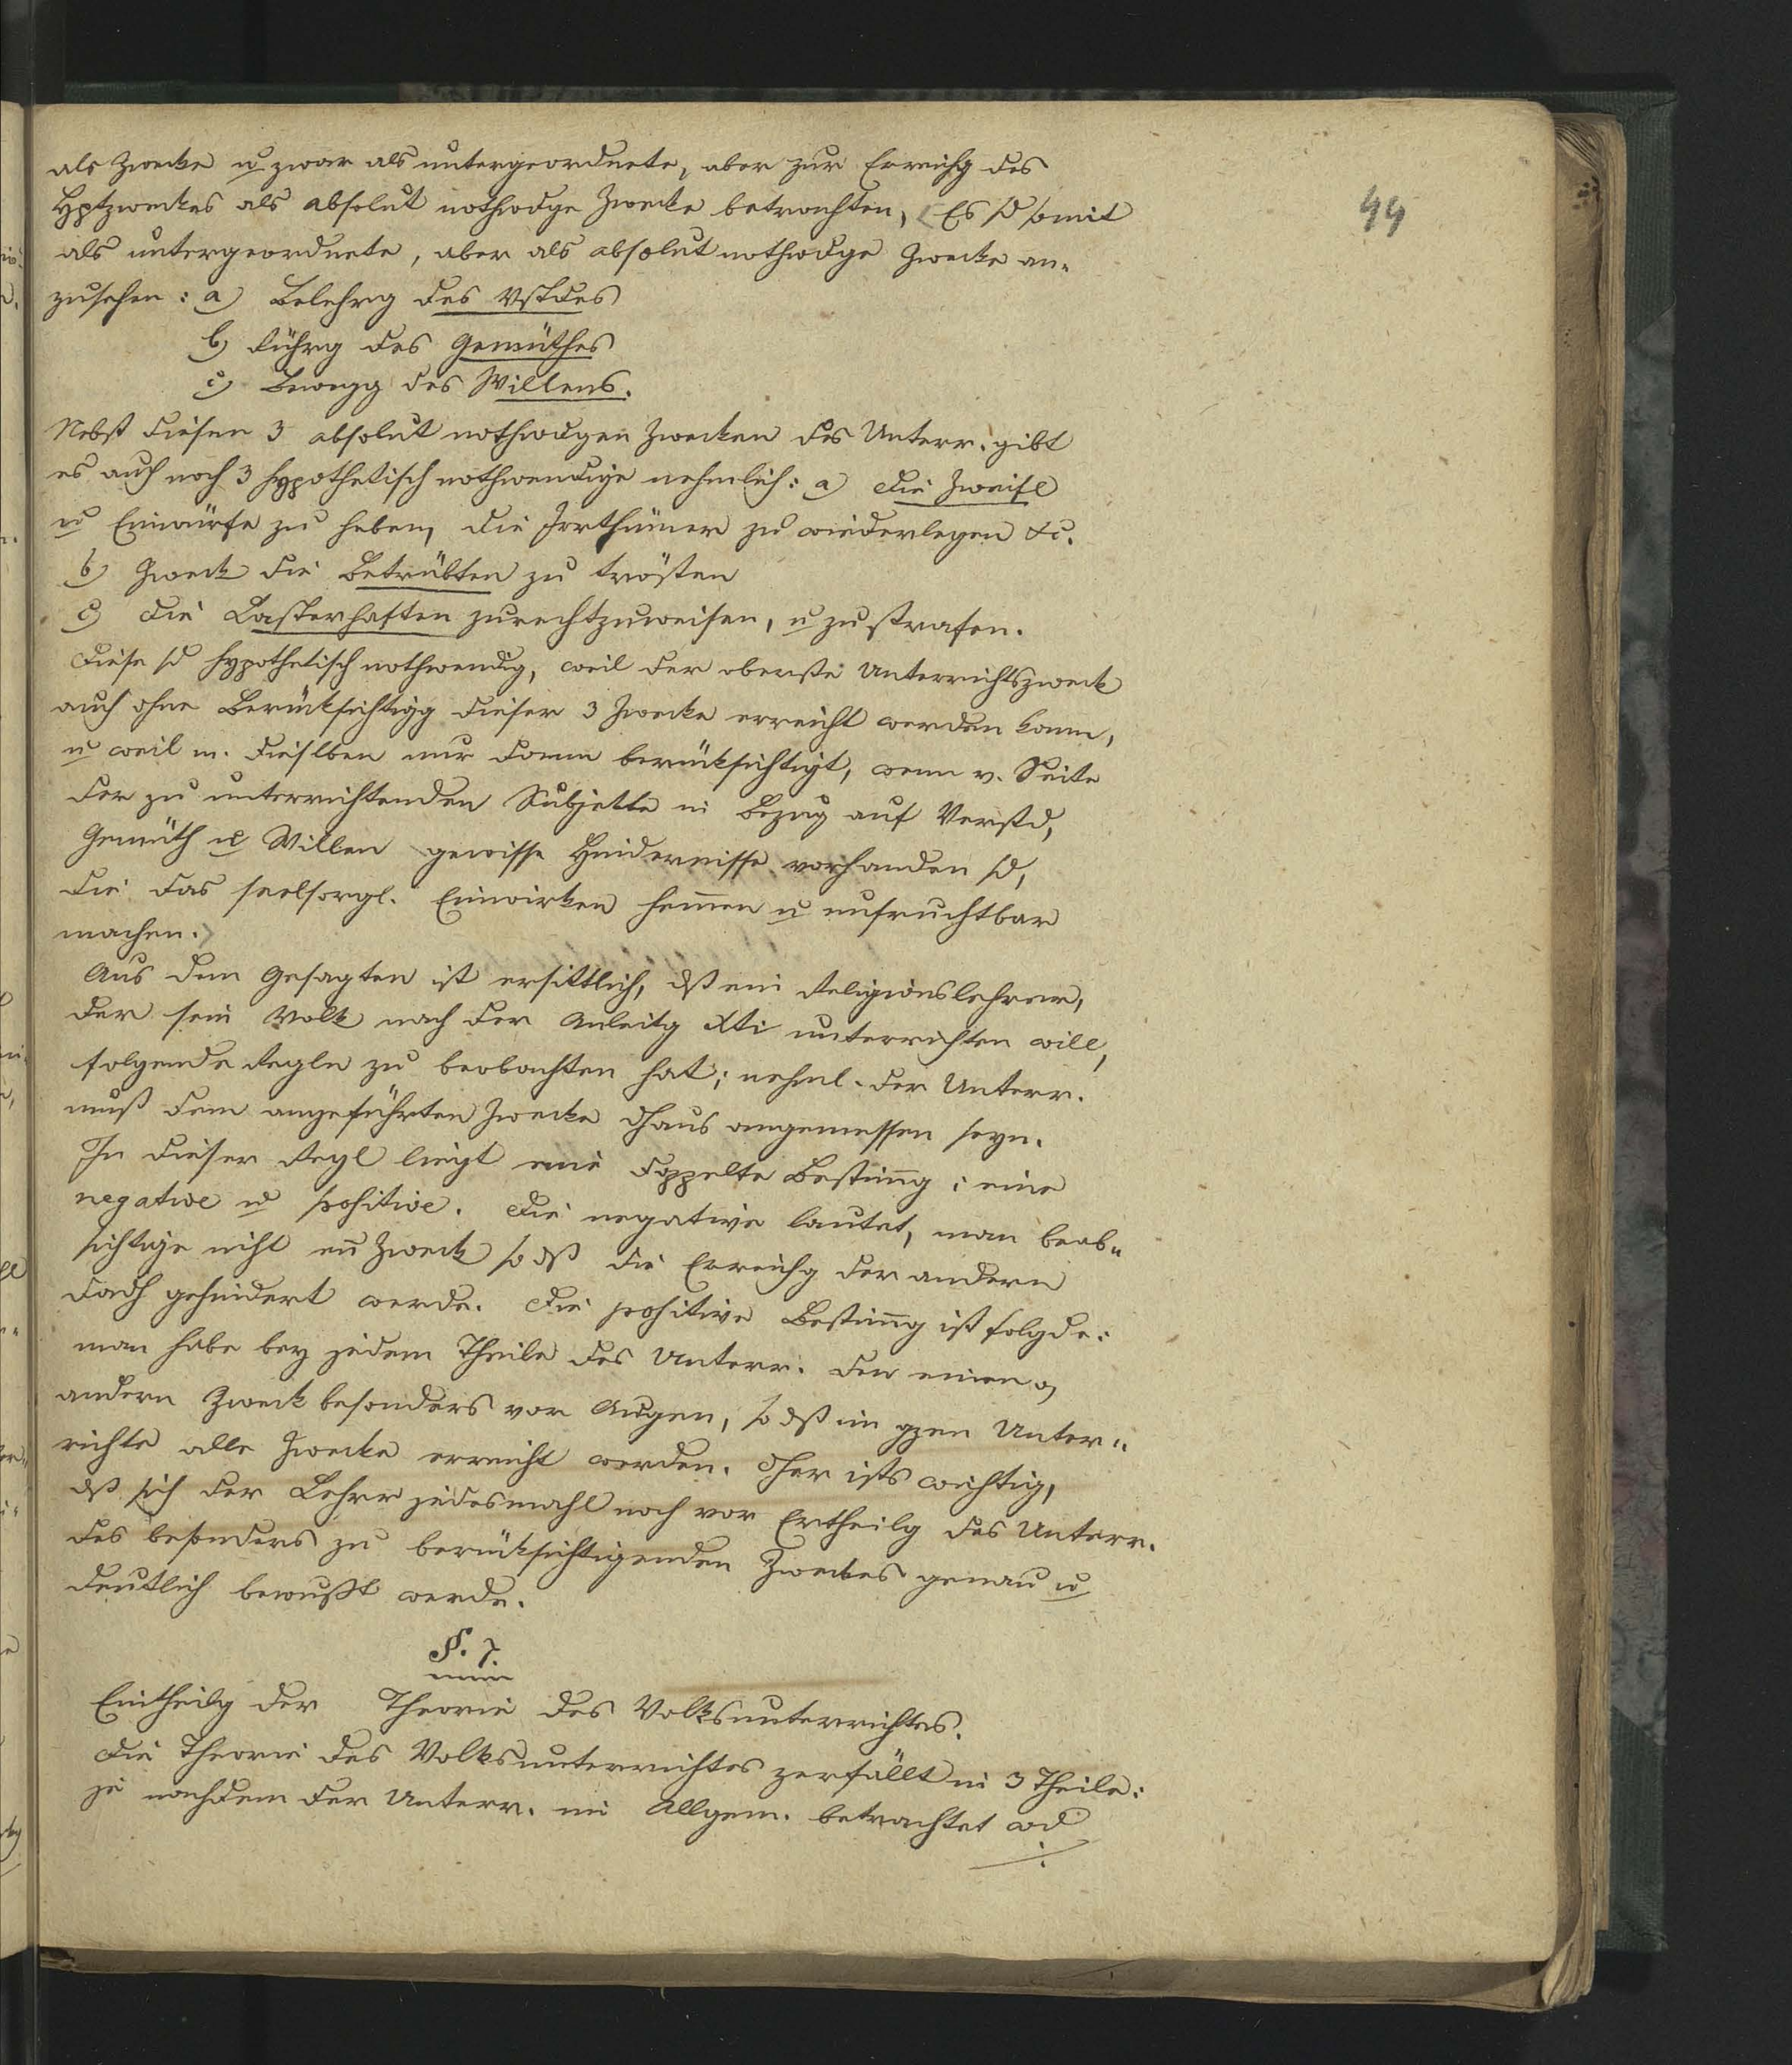 44
als Zwecke u zwar als untergeordnete, aber zur Erreichg des
Hptzweckes als absolut nothwdge Zwecke betrachten, Es sd somit
als untergeordnete, aber als absolut nothwdge Zwecke an-
zusehen: a) Belehrg des Vstdes
b) Rührg des Gemüthes
c) Bewegg des Willens.
Nebst diesen 3 absolut nothwdgen Zwecken des Unterr. gibt
es auch noch 3 hypothetisch nothwendige nehmlich: a) die Zweifl
u Einwürfe zu heben, die Irrthümer zu wiederlegen &c.
b) Zweck die Betrübten zu trösten
c) die Lasterhaften zurechtzuweisen, u zu strafen.
Diese sd hypothetisch nothwendig, weil der oberste Unterrichtszweck
auch ohne Berücksichtigg dieser 3 Zwecke erreicht werden kann,
u weil m. dieslben nur dann berücksichtigt, wenn v. Seite
der zu unterrichtenden Subjekte in Bezug auf Verstd,
Gemüth u Willen gewisse Hindernisse vorhanden sd,
die das seelsorgl. Einwirken hemmen u unfruchtbar
machen.
Aus dem Gesagten ist ersittlich, dß ein Religionslehrer,
der sein Volk nach der Anleitg Xti unterrichten will,
folgende Regln zu beobachten hat; nehml. der Unterr.
muß dem angeführten Zwecke dhaus angemessen seyn.
In dieser Regl liegt eine doppelte Bestimg: eine
negative u positive. Die negative lautet, man beab-
sichtige nicht ein Zweck so dß die Erreichg der andern
dadh gehindert werde. Die positive Bestimg ist folgde:
man habe bey jedem Theile des Unterr. den einen o
andern Zweck besonders vor Augen, so dß im gzen Unter-
richte alle Zwecke erreicht werden. Dher ists wichtig,
dß sich der Lehrr jedesmahl noch vor Ertheilg des Unterr.
des besonders zu berücksichtigenden Zweckes genau u
deutlich bewußt werde.
§. 7.
Eintheilg der Theorie des Volksunterrichtes.
Die Theorie des Volksunterrichtes zerfällt in 3 Theile:
je nachdem der Unterr. im Allgem. betrachtet wd